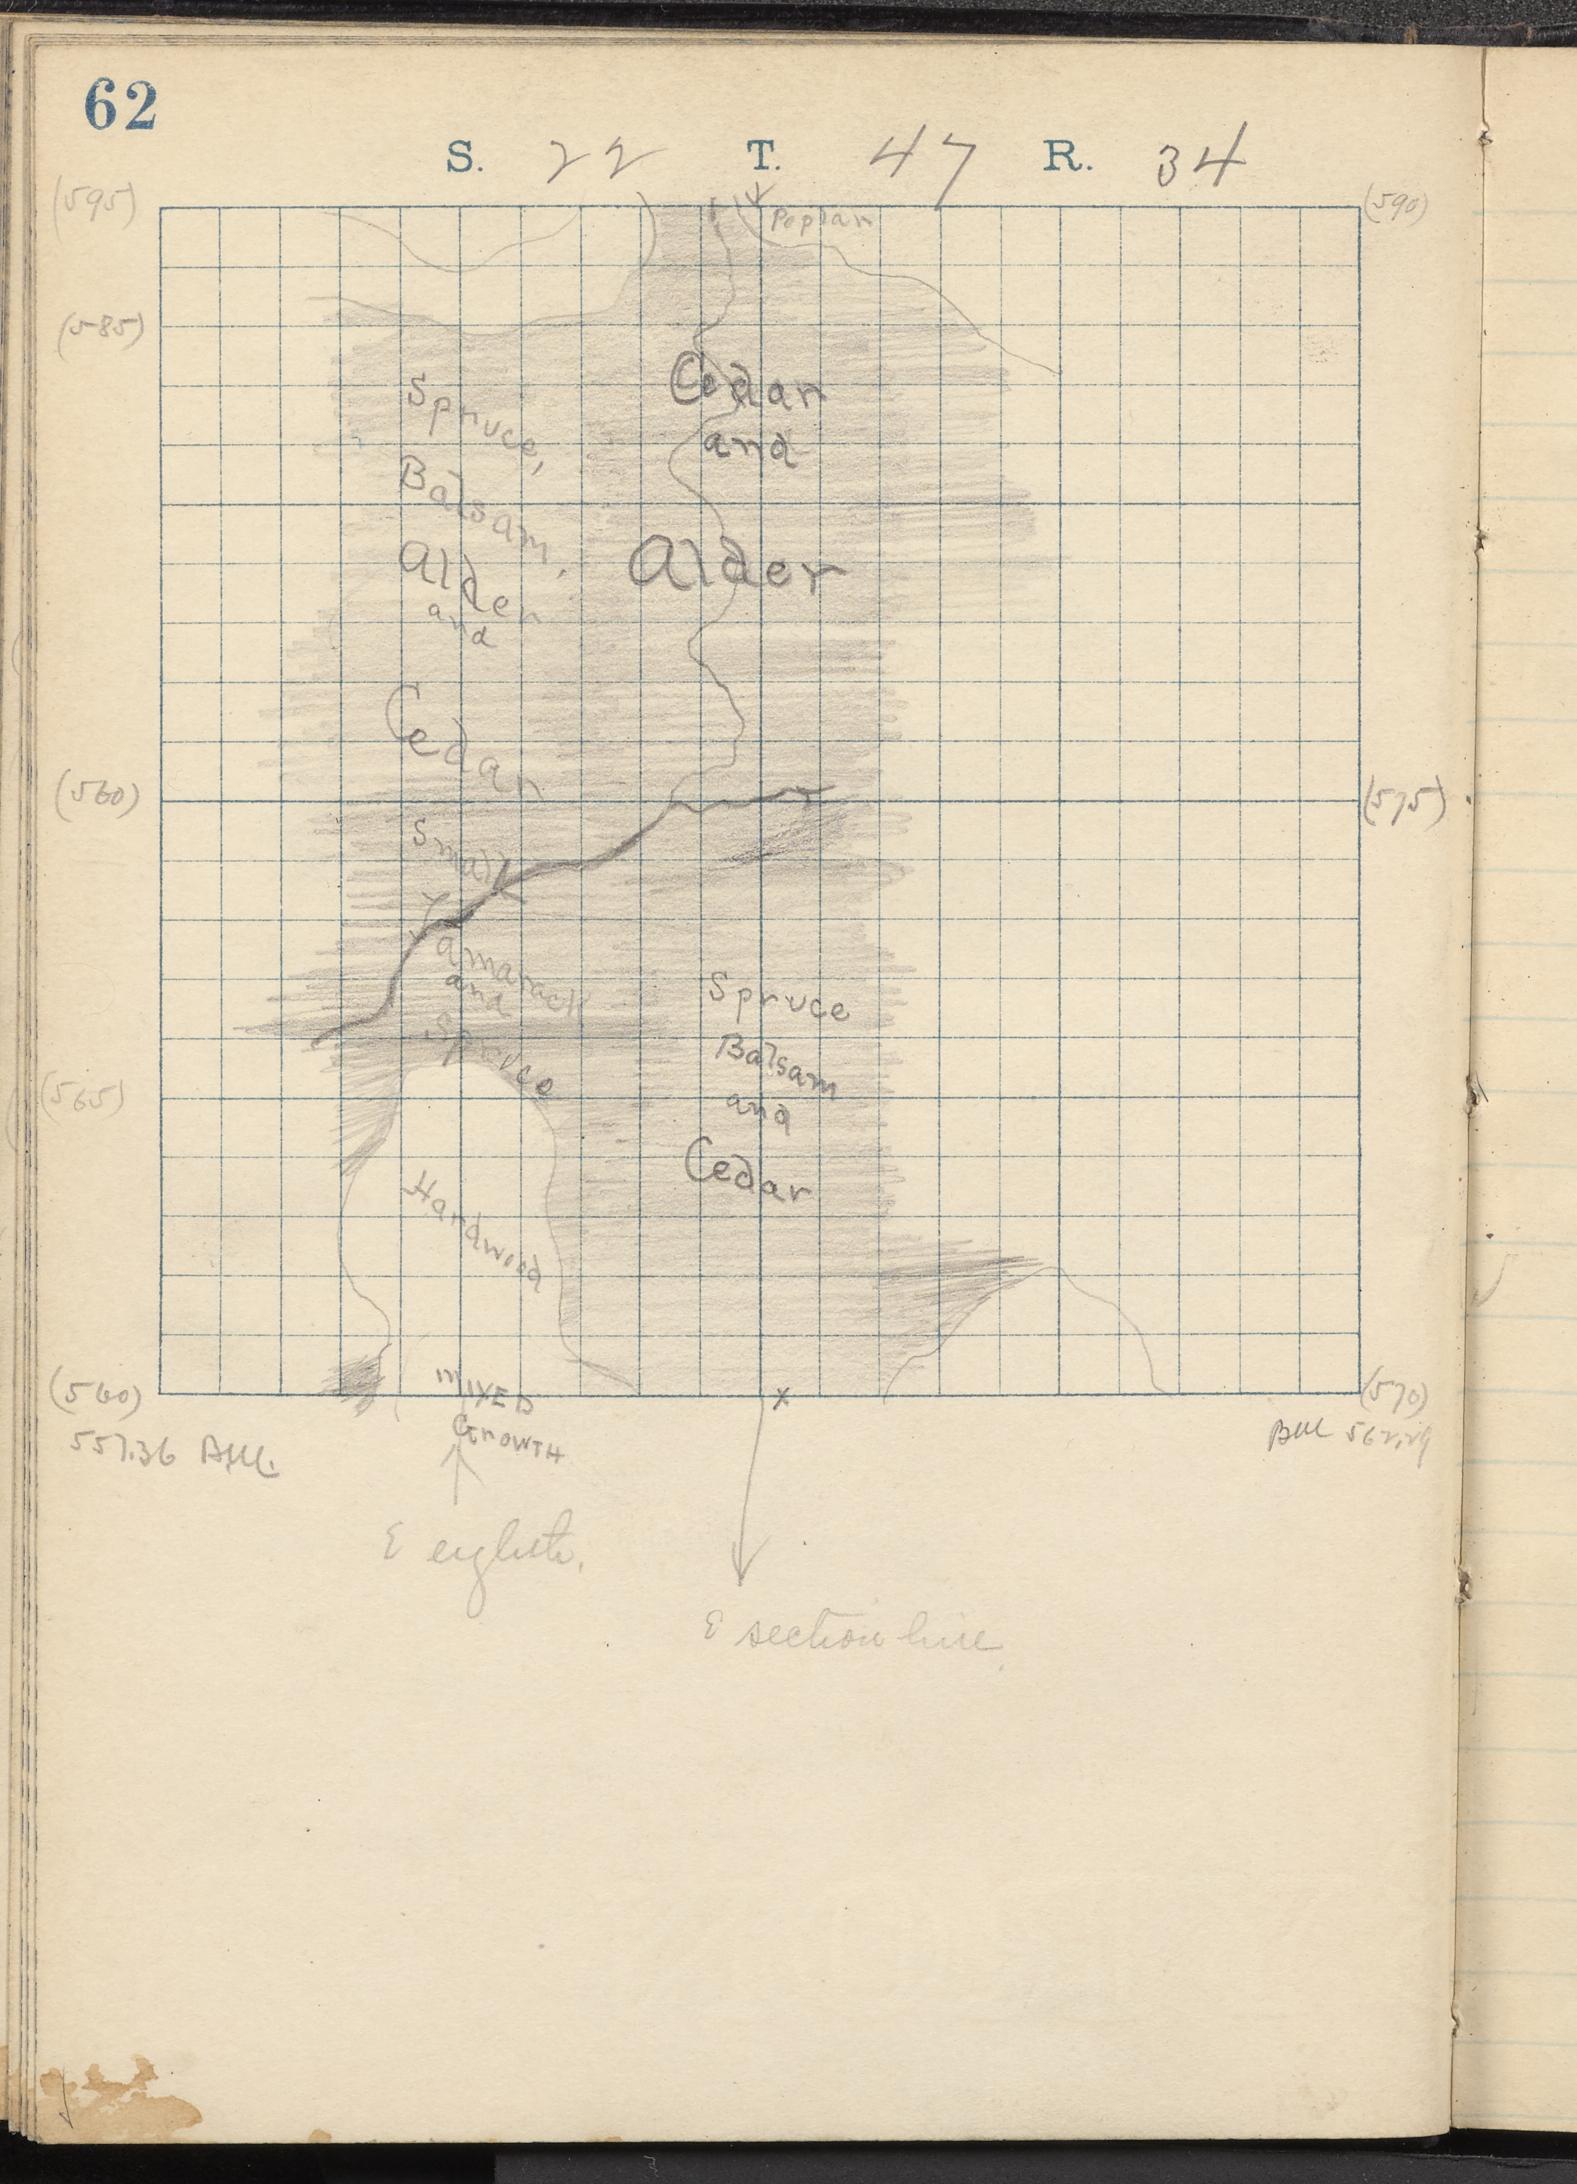 62
S. 22 T. 47 R. 34
(595) (590)
Poplar
(585)
Spruce,
Balsam,
Alder
and
Cedar
Cedar
and
Alder
(560) (575)
Small
Tamarack
and
Spruce
Spruce
Balsam
and
Cedar
(565)
Hardwood
(560) (570)
MIXED
GROWTH
x
557.36 B.M. BM 562.29
E eighth.
E section line